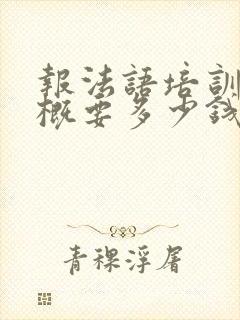 報法語培訓
概要多少錢
青稞浮屠